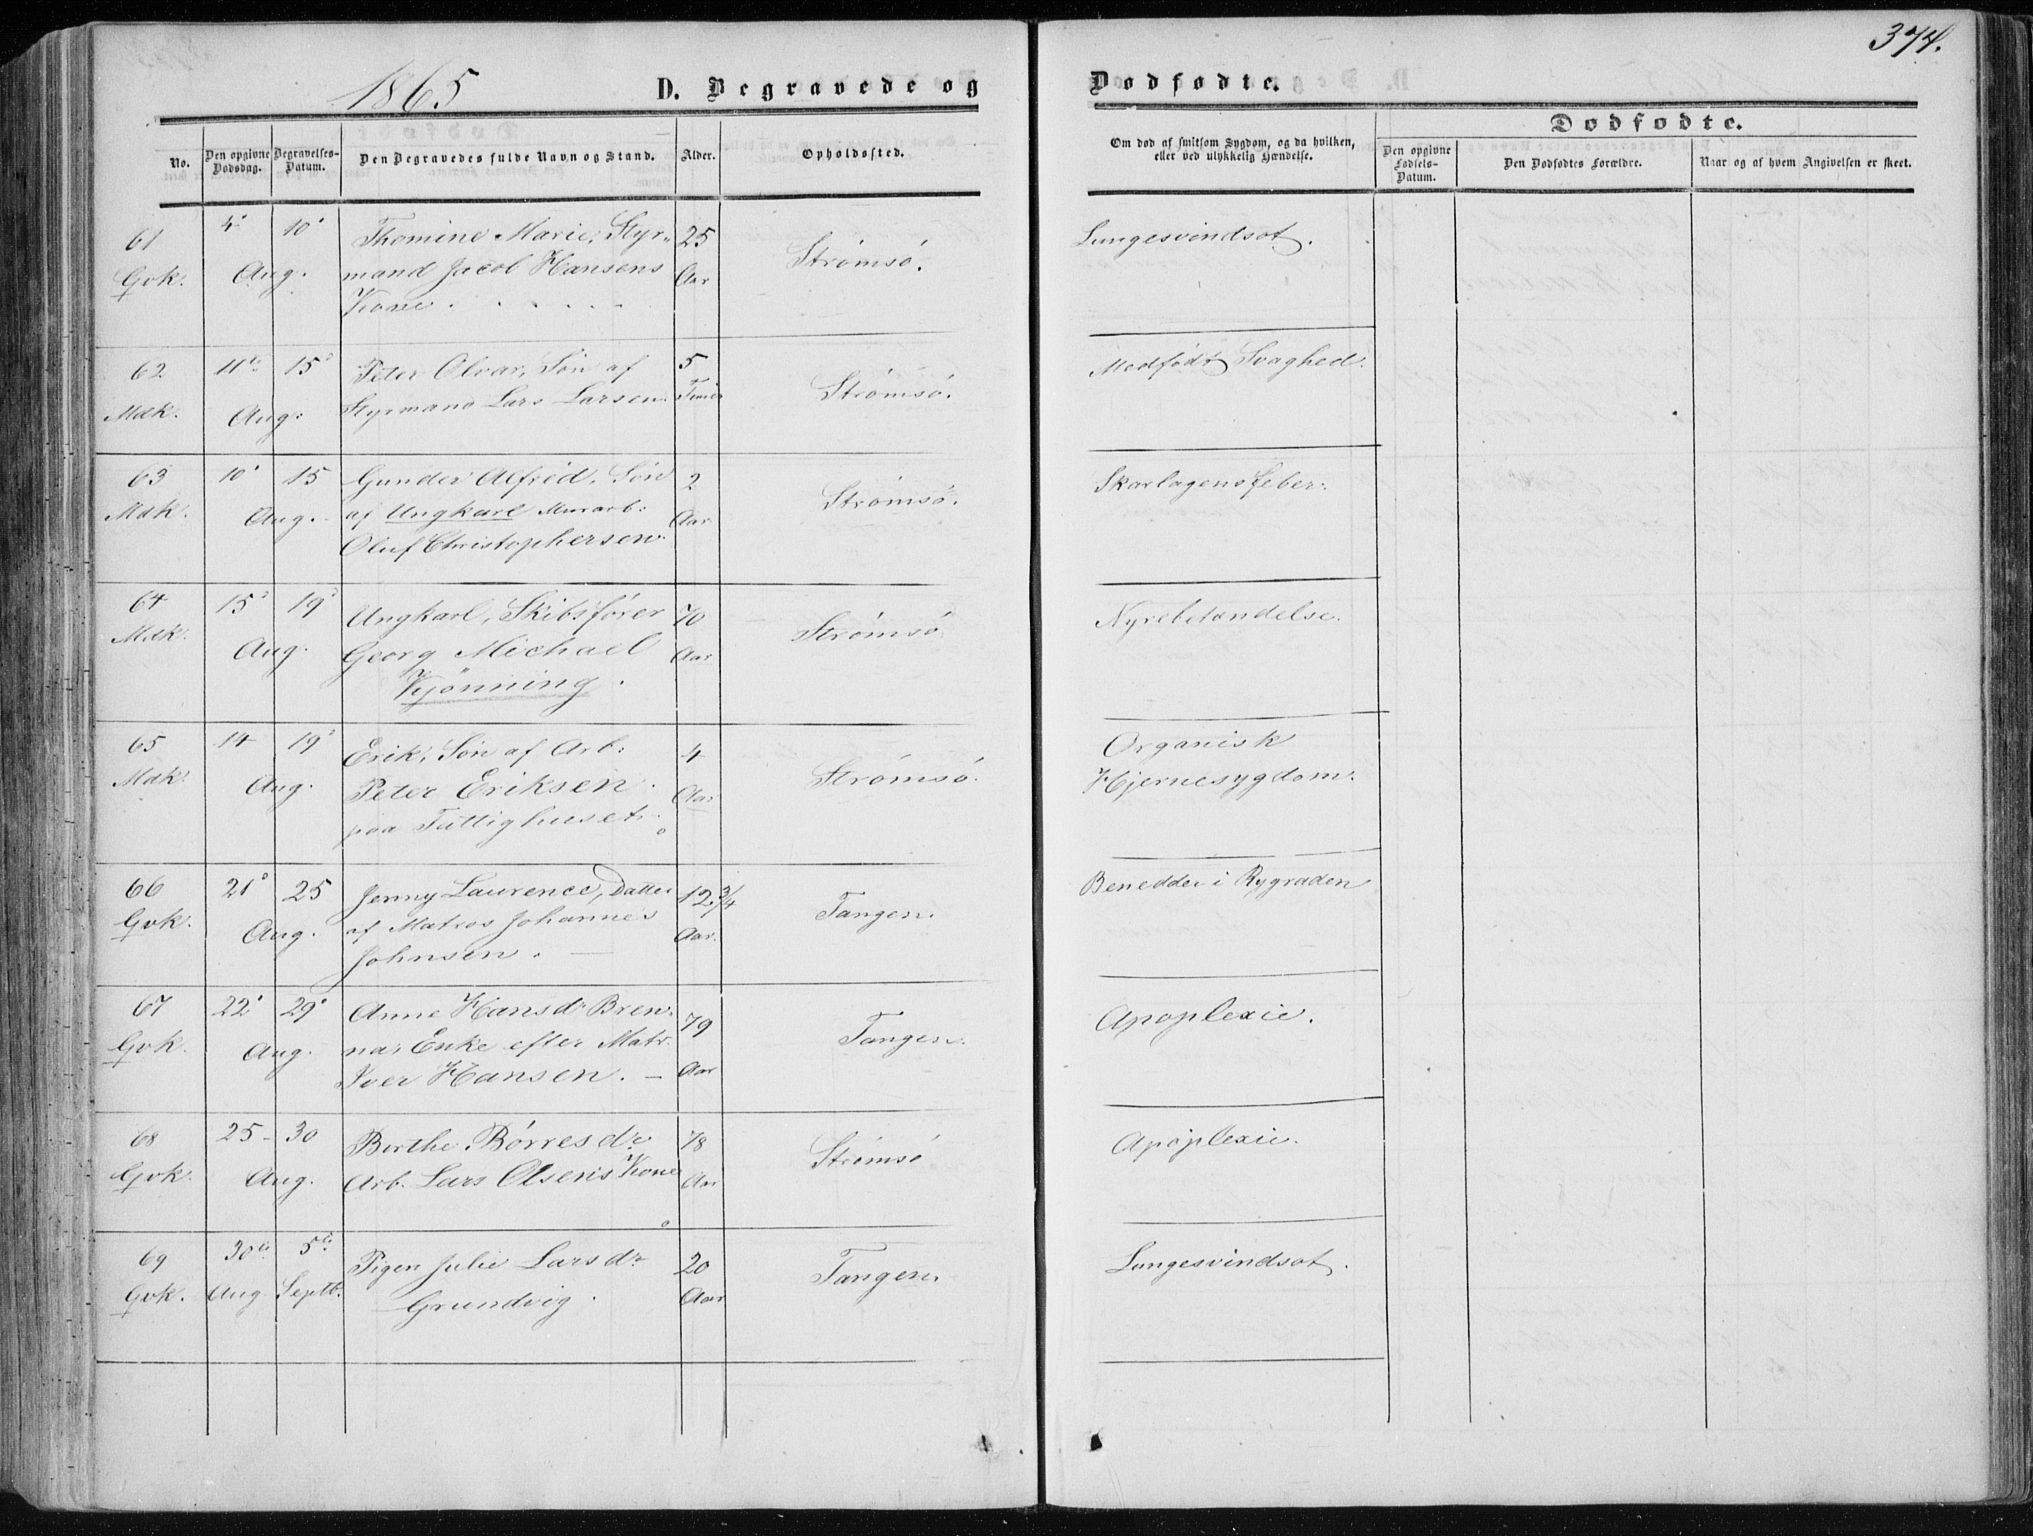 374.
1865
D. Begravede og
Dødfødte.
No.
Den opgivne Dødsdag.
Begravelses-Datum.
Den Begravedes fulde Navn og Stand.
Alder.
Opholdssted.
Om død af smitsom Sygdom, og da hvilken, eller ved ulykkelig Hændelse.
Dødfødte.
Den opgivne Fødsels-Datum.
Den Dødfødtes Forældre.
Naar og af hvem Angivelsen er skeet.
61
Qvk.
4
10
Aug.
Thomine Marie, Styr-
mand Jacob Hansens
Kone
25
Aar
Strømsö.
Lungesvindsot.
62
Mdk.
11te
15
Aug.
Peter Olvar, Søn af
Styrmand Lars Larsen.
5
Timer
Strømsö.
Medfødt Svaghed.
63
Mdk.
10
15
Aug.
Gunder Alfred, Søn
af Ungkarl Murarb:
Oluf Christophersen.
2
Aar
Strømsö.
Skarlagensfeber.
64
Mdk.
15
19
Aug.
Ungkarl, Skibsfører
Georg Michael
Kjönning.
70
Aar
Strømsö
Nyrebetændelse.
65
Mdk.
14
19
Aug.
Erik, Søn af Arb:
Peter Eriksen
paa Fattighuset.
4
Aar
Strømsö.
Organisk
Hjernesygdom.
66
Qvk.
21
25
Aug.
Jenny Laurence, Datter
af Matros Johannes
Johnsen.
12 3/4
Aar.
Tangen.
Benedder i Rygraden
67
Qvk.
22
29
Aug.
Anne Hansdr Bren-
na, Enke efter Matr.
Iver Hansen. —
79
Aar
Tangen.
Apoplexie.
68
Qvk.
25
30
Aug.
Berthe Børresdr
Arb. Lars Olsens Kone
78
Aar
Strømsö
Apoplexie.
69
Qvk.
30te
5te
Aug
Septb.
Pigen Julie Larsdr
Grundvig.
20
Aar
Tangen.
Lungesvindsot.